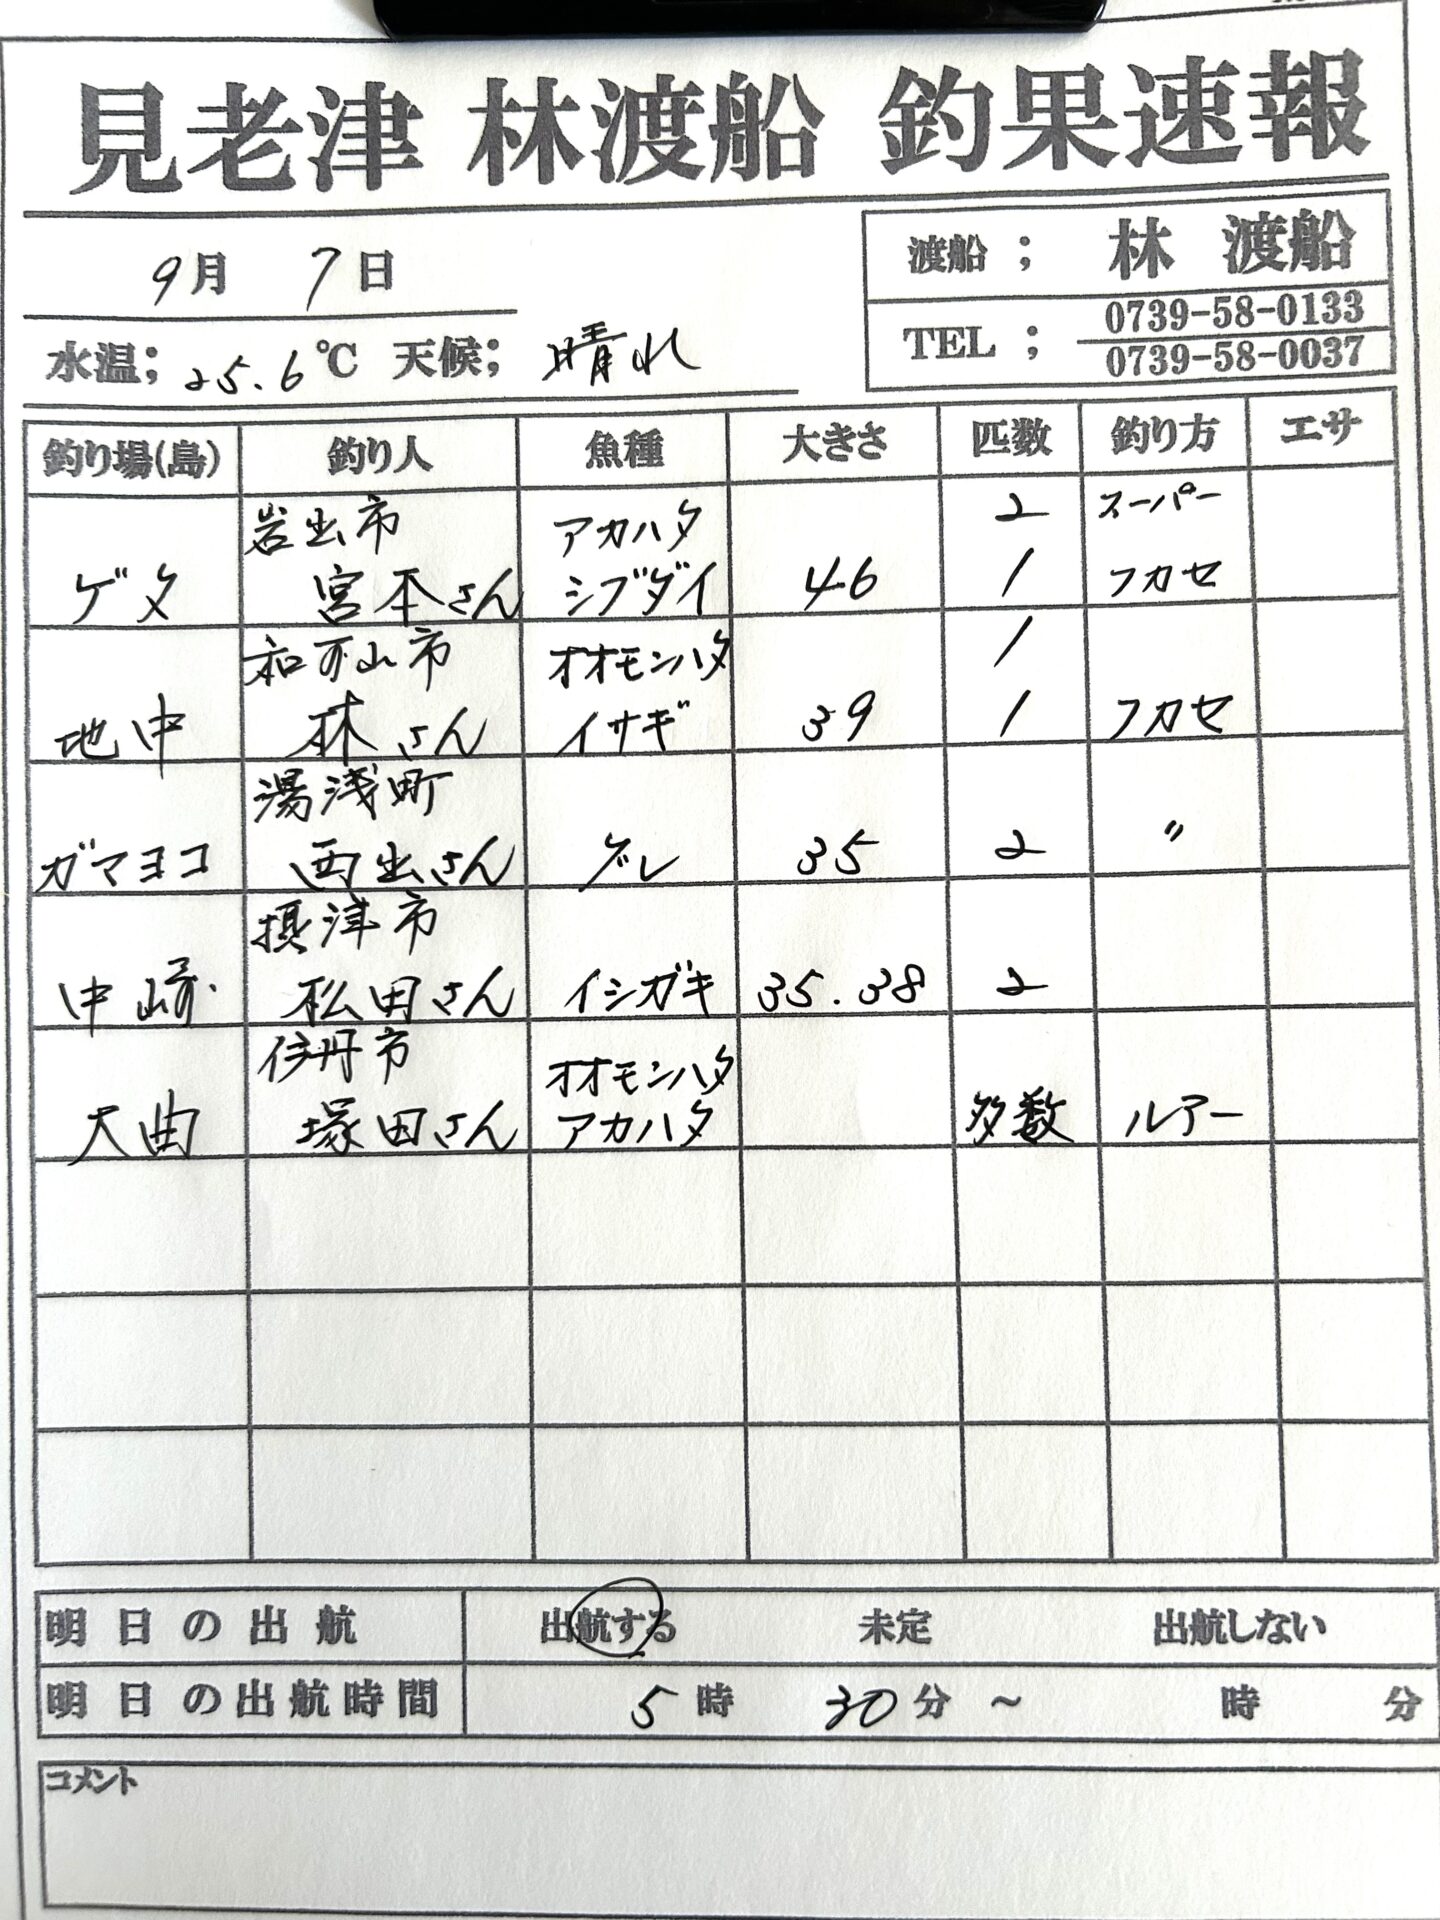 見老津 林渡船 釣果速報
9月 7日
渡船 ; 林 渡船
TEL ; 0739-58-0133
0739-58-0037
水温; 25.6℃ 天候; 晴れ
釣り場(島) 釣り人 魚種 大きさ 匹数 釣り方 エサ
岩出市 アカハタ 2 スーパー
ゲタ 宮本さん シブダイ 46 1 フカセ
和可山市 オオモンハタ 1
地中 林さん イサギ 39 1 フカセ
湯浅町
ガマヨコ 西出さん グレ 35 2 〃
摂津市
中崎 松田さん イシガキ 35.38 2
伊丹市 オオモンハタ
大曲 塚田さん アカハタ 多数 ルアー
明日の出航 出航する 未定 出航しない
明日の出航時間 5時 30分 ~ 時 分
コメント